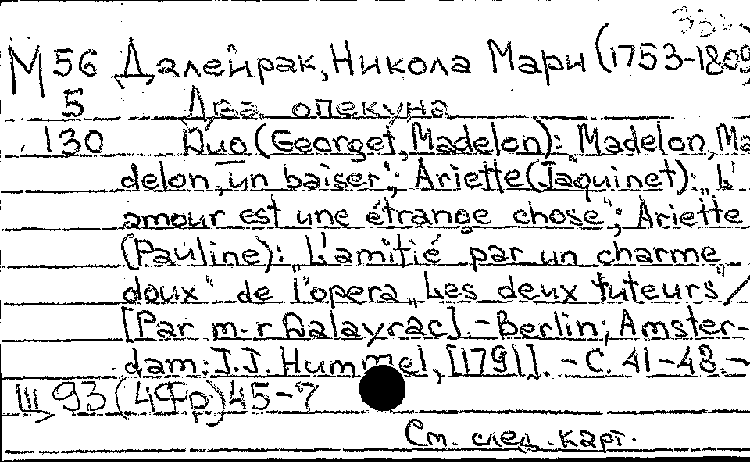 М 56 Далейрак, Никола Мари (1753-1809)
5 Два опекуна
130 Duo (Georget, Madelon): "Madelon, Ma
delon, un baiser"; Ariette (Jaquinet): "L'
amour est une étrange chose"; Ariette
(Pauline): "L'amitié par un charme
doux" de l'opera "Les deux tuteurs"/
[Par m-r Dalayrac]. - Berlin; Amster-
dam: J.J. Hummel, [1791]. - С. 41-48. -
III 93 (4Фр) 45-7
См. след. карт.